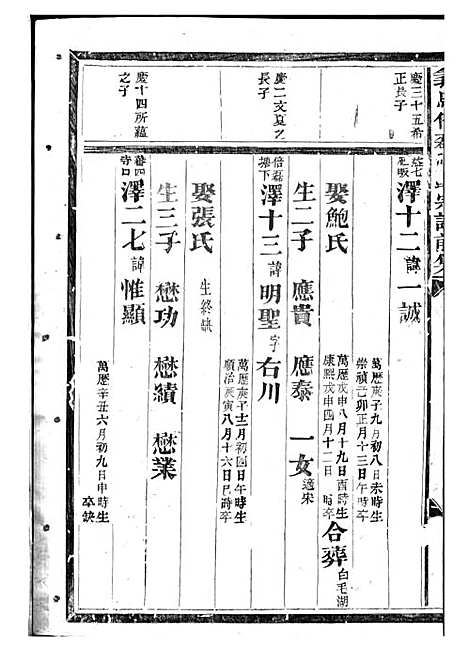 慶三十五希
正長子
澤十二 諱 一誠
萬歷庚子九月初八日未時生
崇禎己卯正月十三日午時卒
娶鮑氏
萬歷戊申八月十九日酉時生
康熙戊申四月十二日 時卒
合葬 白毛湖
生二子 應貴 應泰 一女 適宋
慶二文夏之
長子
倍磊
塘下
澤十三 諱 明聖 字 右川
萬歷庚子十二月初四日午時生
順治庚寅八月十六日巳時卒
娶張氏 生終缺
生三子 懋功 懋績 懋業
慶十四所蘊
之子
寺口
澤二七 諱 惟顯
萬歷辛丑六月初九日申時生
卒缺